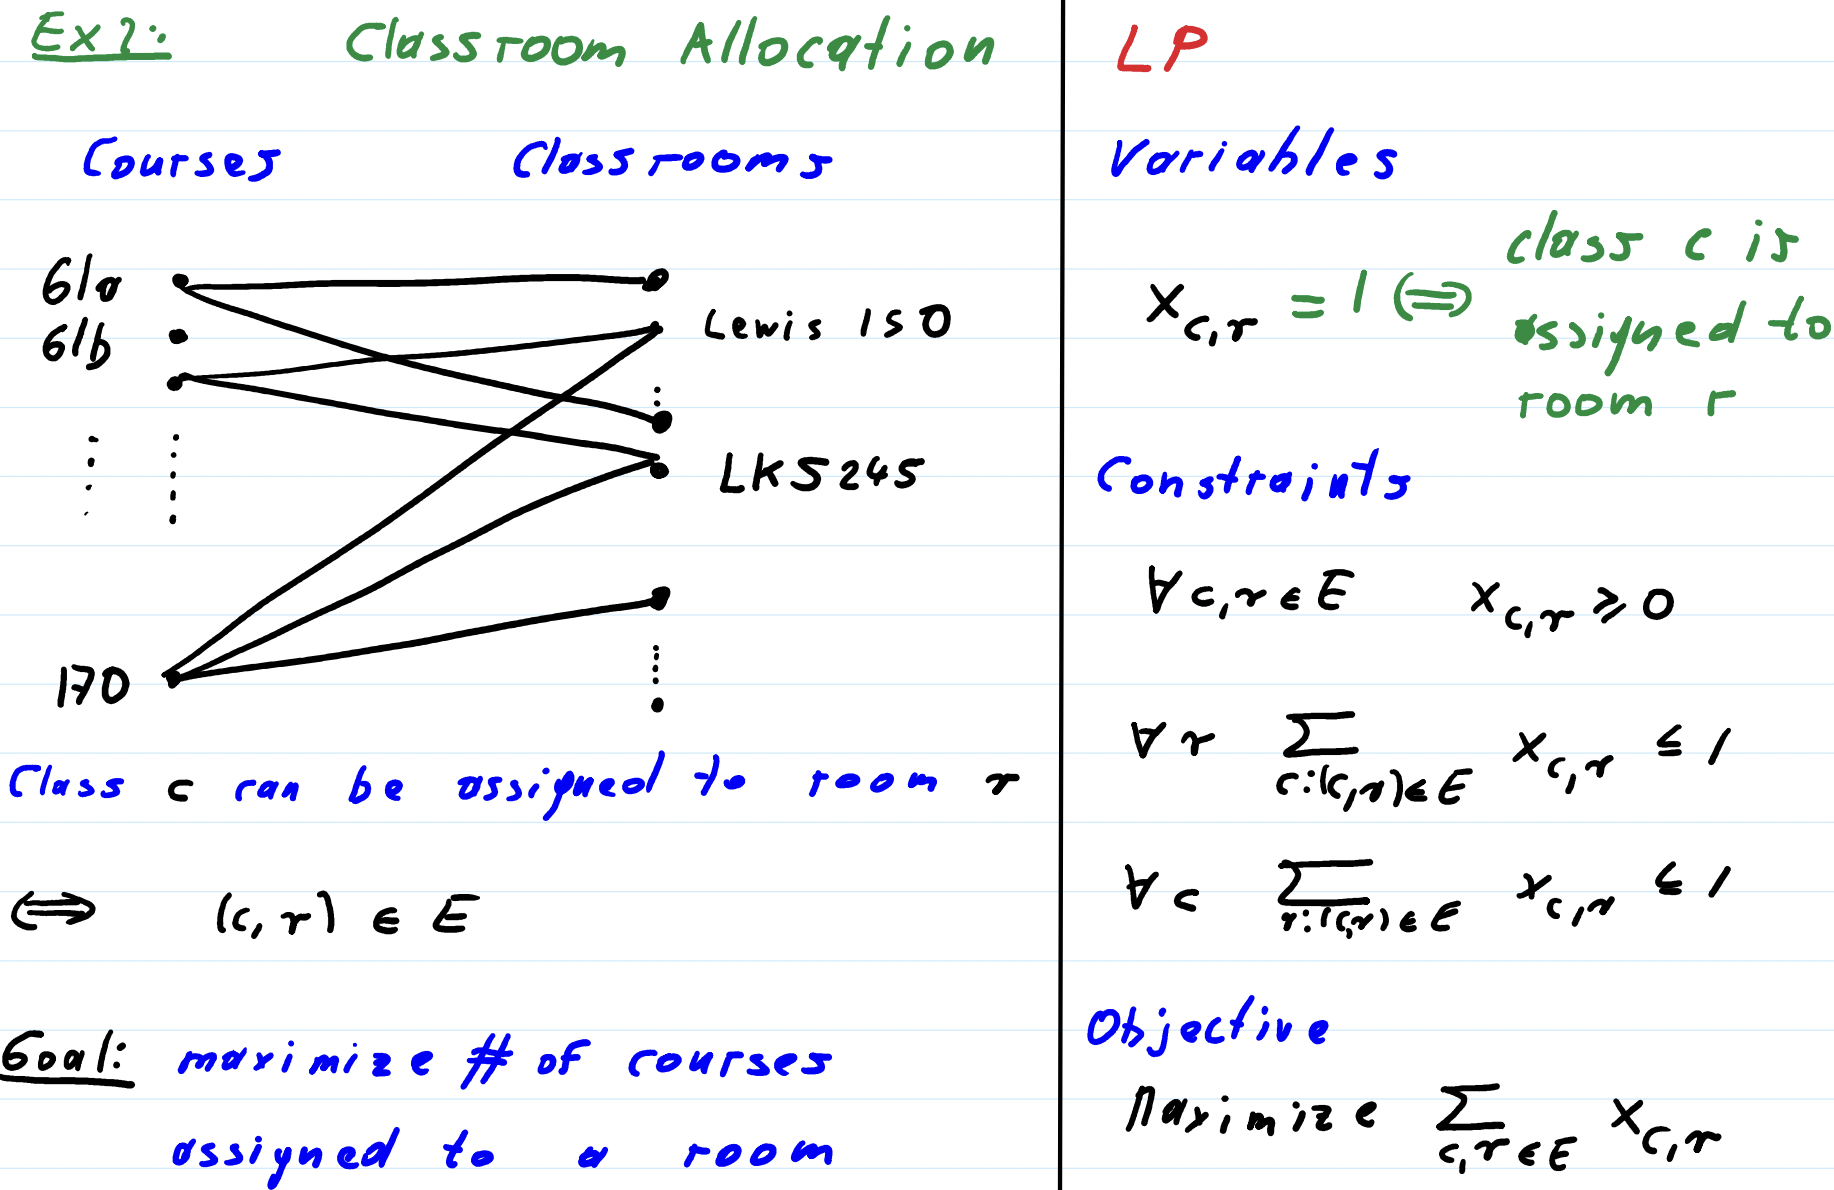 Ex 2: Classroom Allocation
Courses Classrooms
61a
61b
Lewis 150
LKS 245
170
Class c can be assigned to room r
⟺ (c, r) ∈ E
Goal: maximize # of courses
assigned to a room
LP
Variables
x_{c,r} = 1 ⟺ class c is
assigned to
room r
Constraints
∀ c, r ∈ E x_{c,r} ⩾ 0
∀ r ∑_{c:(c,r)∈E} x_{c,r} ≤ 1
∀ c ∑_{r:(c,r)∈E} x_{c,r} ≤ 1
Objective
Maximize ∑_{c,r∈E} x_{c,r}